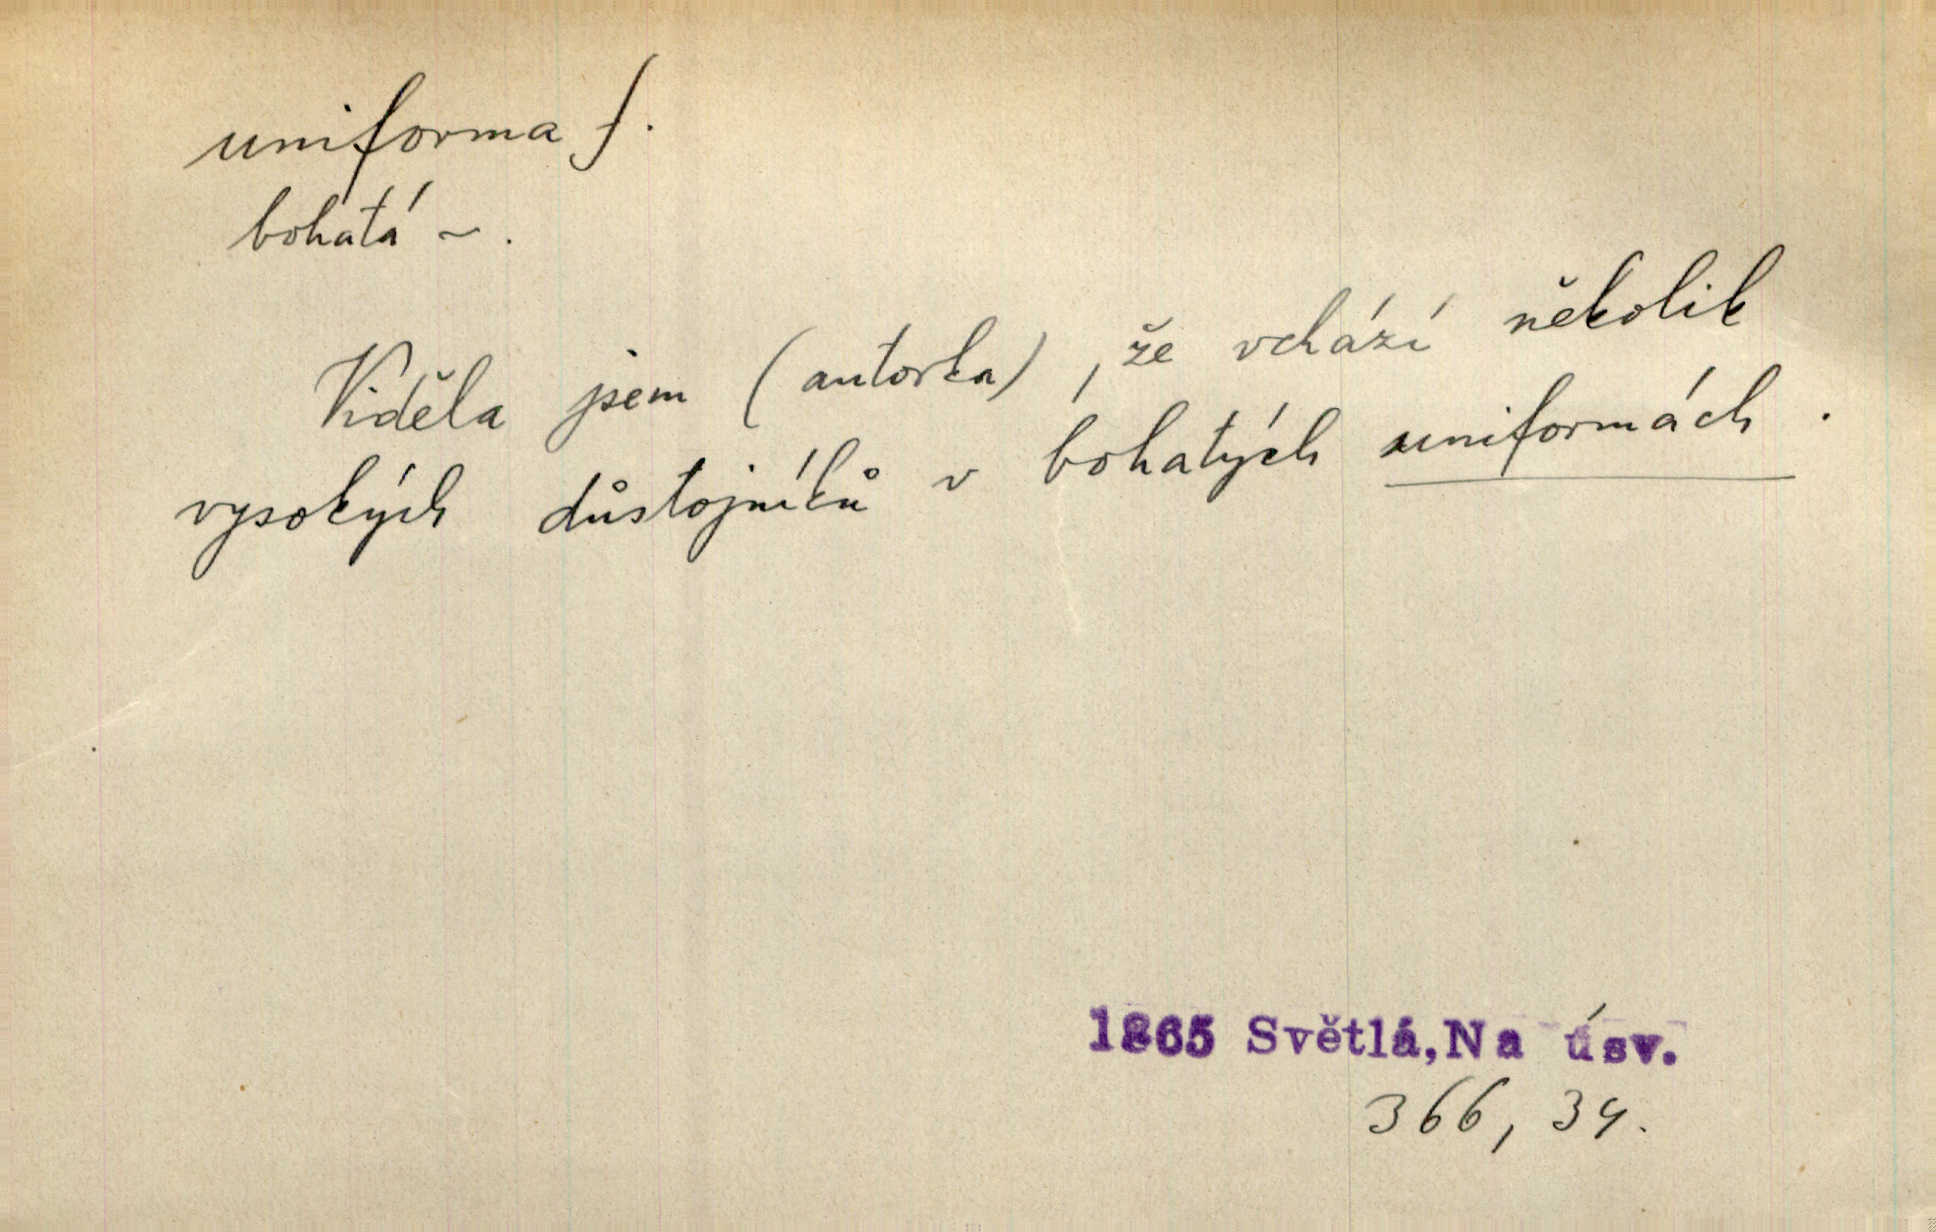 uniforma f.
bohatá ~.
Viděla jsem (autorka), že vchází několik
vysokých důstojníků v bohatých uniformách.
1865 Světlá, Na úsv.
366, 34.